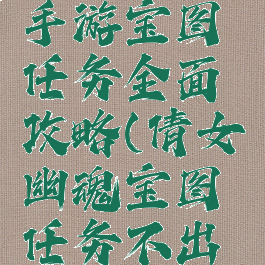 手游宝图
任务全面
攻略(倩女
幽魂宝图
任务不出